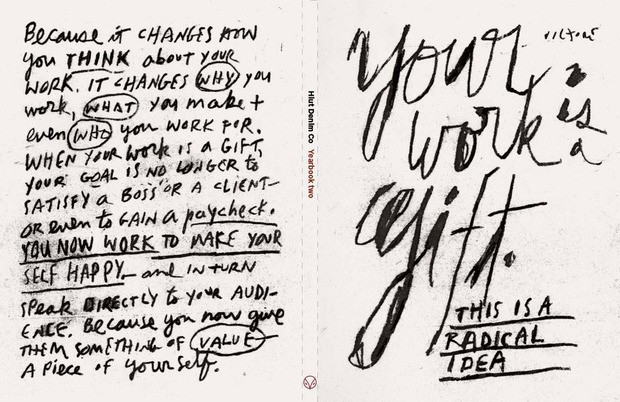 Because it CHANGES HOW
you THINK about YOUR
WORK. IT CHANGES WHY you
work, WHAT you make +
even WHO you WORK FOR.
WHEN YOUR WORK IS A GIFT,
YOUR GOAL IS NO LONGER to
SATISFY a BOSS OR A CLIENT—
OR even to GAIN a paycheck.
YOU NOW WORK TO MAKE YOUR
SELF HAPPY— and IN TURN
SPeak DIRECTLY to YOUR AUDI-
ENCE. Because you now give
THEM SOMETHING OF VALUE—
A Piece of yourself.
Hiut Denim Co Yearbook two
your
work
is
a
gift.
THIS IS A
RADICAL
IDEA